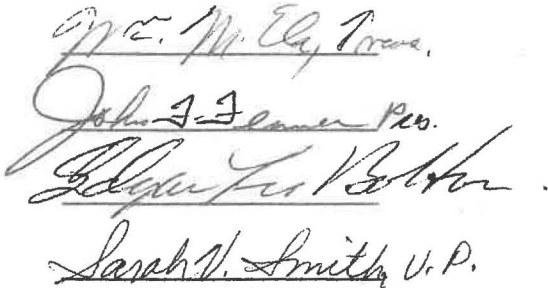 Wm. M. Ely, Treas.
John F. Fenner Pres.
Edgar Leo Bolton.
Sarah V. Smith, V.P.